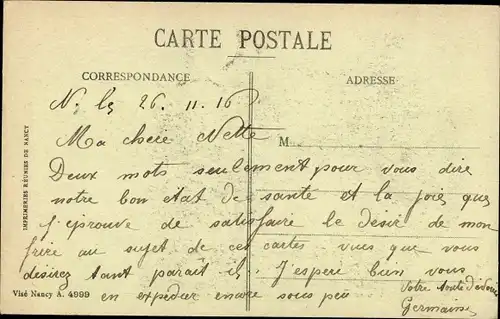 CARTE POSTALE
CORRESPONDANCE
ADRESSE
N. le 26. 11. 16
Ma chère Nette
M
Deux mots seulement pour vous dire
notre bon etat de sante et la joie que
j'eprouve de satisfaire le desir de mon
frère au sujet de ces cartes vues que vous
désirez tant paraît il. J'espère bien vous
en expedier encore sous peu
Votre toute dévouée
Germaine
Visé Nancy A. 4999
IMPRIMERIES RÉUNIES DE NANCY